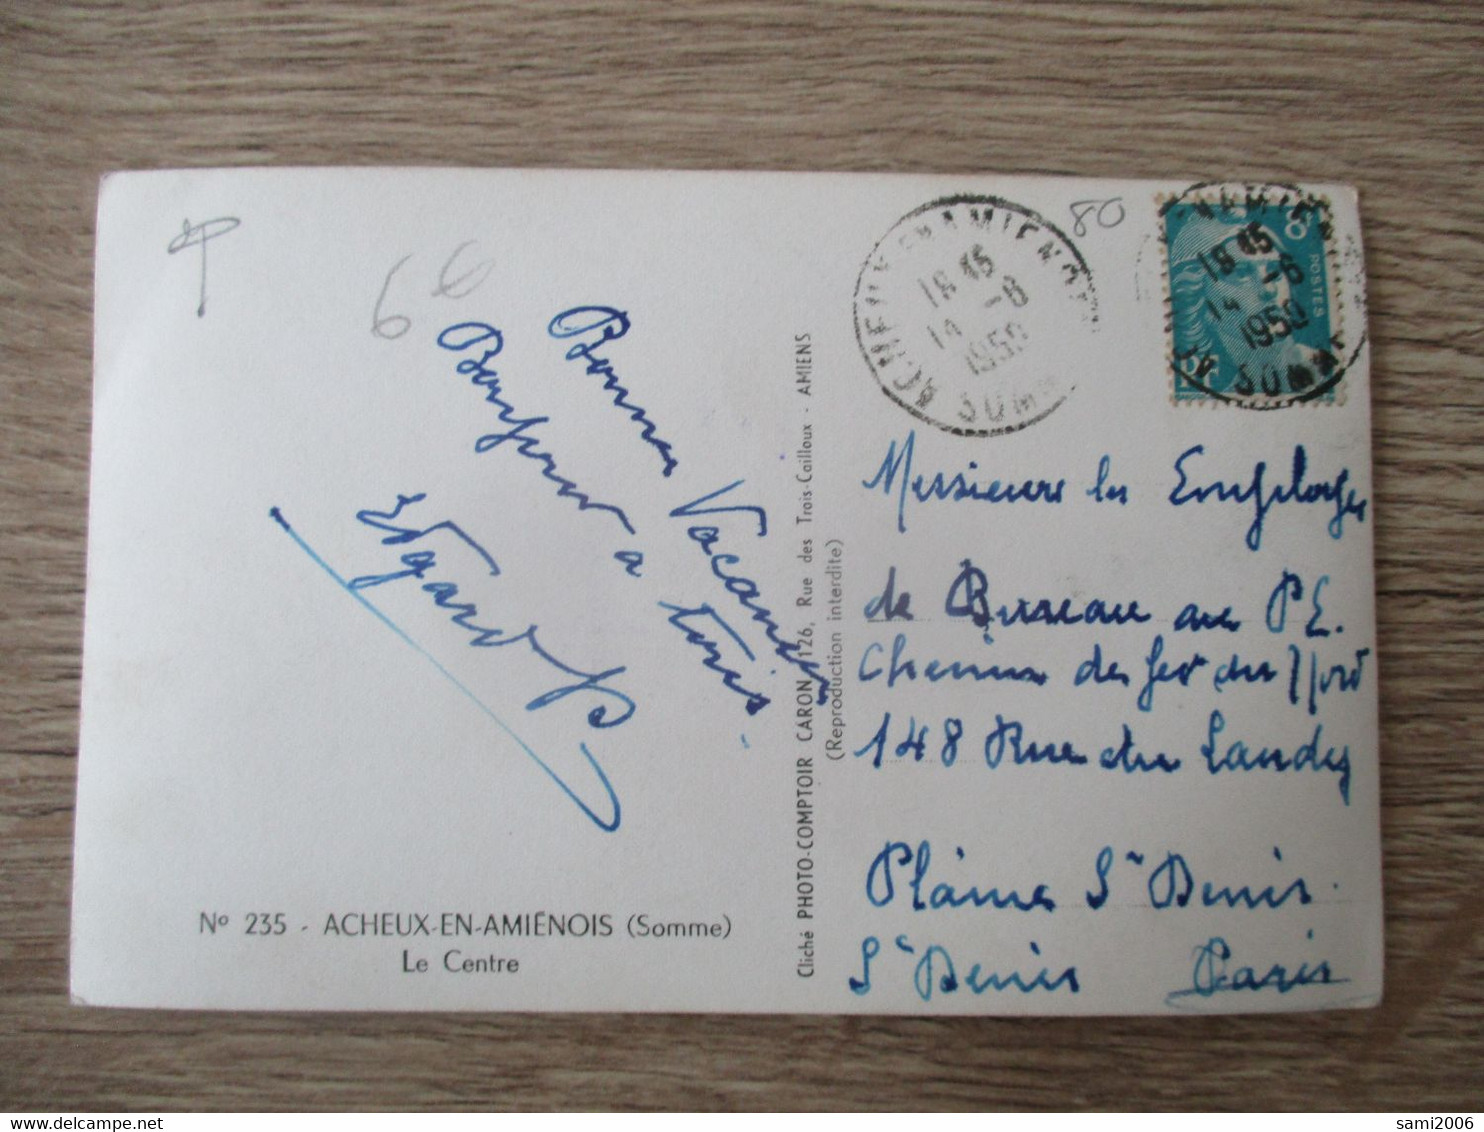 66
80
Bonnes Vacances
Bonjour a tous.
Edgard
ACHEUX-EN-AMIENOIS
18 45
14 -8
1950
SOMME
8
POSTES
18 45
14 -8
1950
SOMME
Messieurs les Employés
de Bureau au P E.
Chemins de fer du Nord
148 Rue du Landy
Plaine St Denis.
St Denis Paris
Cliché PHOTO-COMPTOIR CARON, 126, Rue des Trois-Cailloux - AMIENS
(Reproduction interdite)
No 235 - ACHEUX-EN-AMIÉNOIS (Somme)
Le Centre
delcampe.net
sami2006